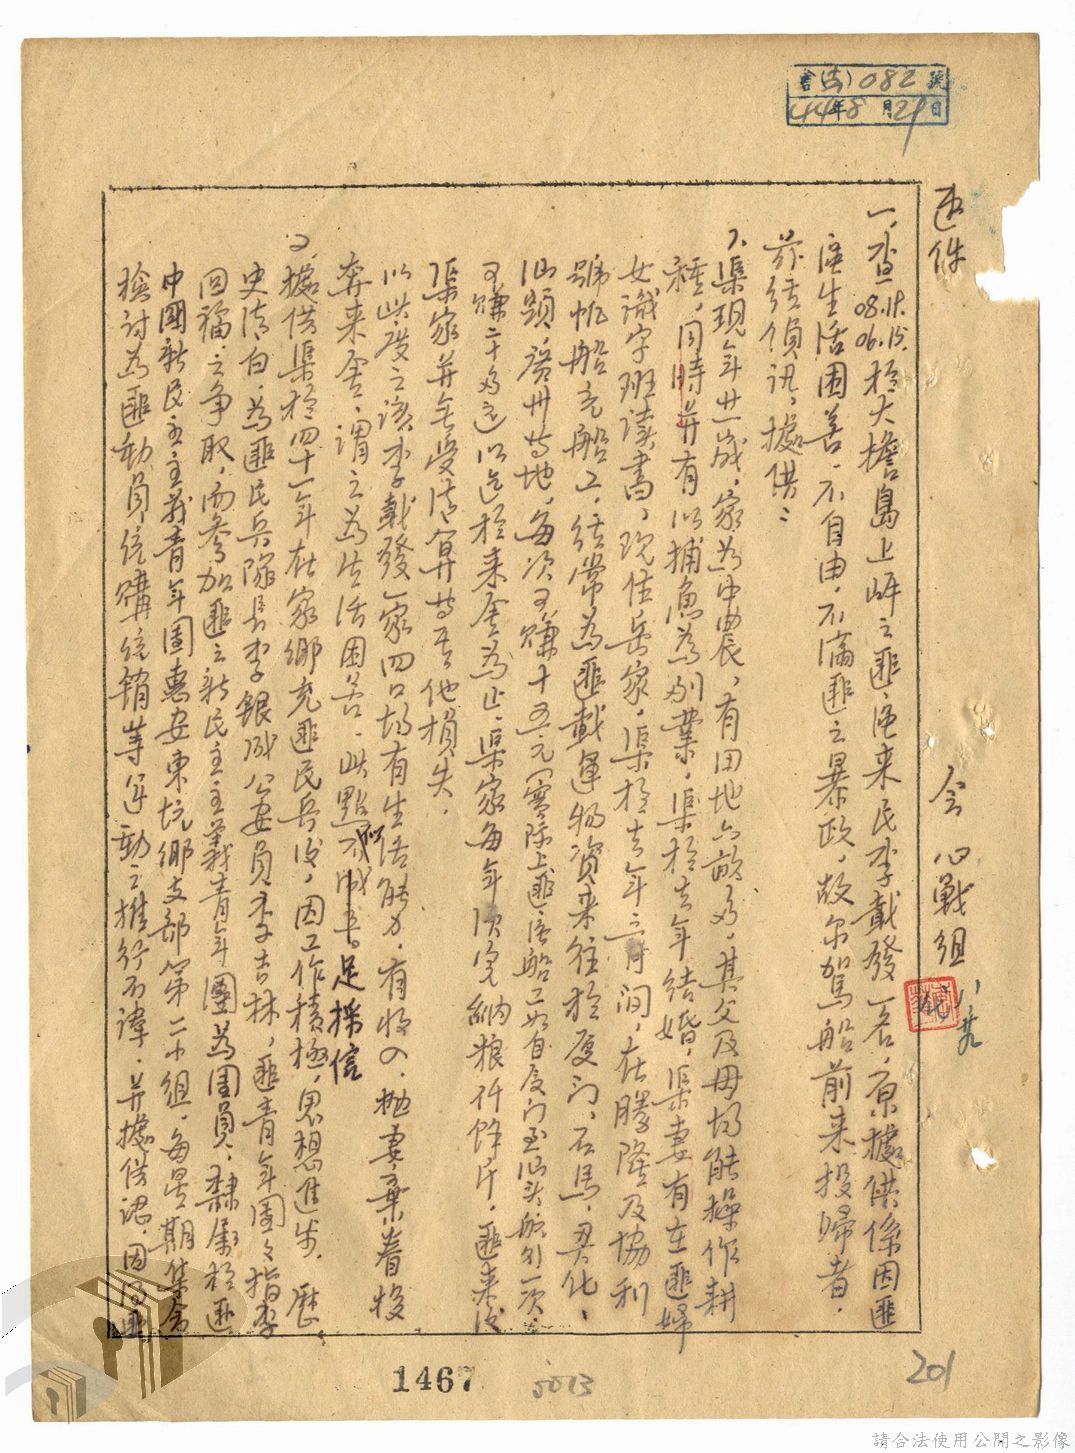 書(吉)082號
44年8月29日
速件
會 心戰組
八廿九
一、查08.15.06.15.於大擔島上岸之匪區來民李戴發一名，原據供係因匪
區生活困苦，不自由，不滿匪之暴政，故爾駕船前來投歸者，
茲經偵訊，據供：
1、渠現年卅歲，家為中農，有田地六畝多，其父及母均能操作耕
種，同時并有以捕魚為副業，渠於去年結婚，渠妻有在匪婦
女識字班讀書，現住岳家，渠於去年三月間，在勝隆及協利
號帆船充船工，經常為匪載運物資來往於廈門、石馬、
汕頭、廣州等地，每次可賺十五元，實際上匪區船工如自廈門至汕頭航行一次，
可賺二十多元，以迄於來金為止，渠家每年須完納粮仟餘斤，匪來後
渠家并無受清算等其他損失，
以此度之，該李戴發一家四口均有生活能力，有收入，拋妻棄眷投
奔來金，謂之為生活困苦，此點似不足採信
2、據供渠於四十一年在家鄉充匪民兵後，因工作積極，思想進步，歷
史清白，為匪民兵隊長李銀成公安員李吉林，匪青年團團指李
回福之爭取，而參加匪之新民主主義青年團為團員，隸屬於匪
中國新民主主義青年團惠安東坑鄉支部第二小組，每星期集會
檢討為匪動員，統購統銷等運動之推行不諱，并據供認，因得匪
1467
5013
201
請合法使用公開之影像